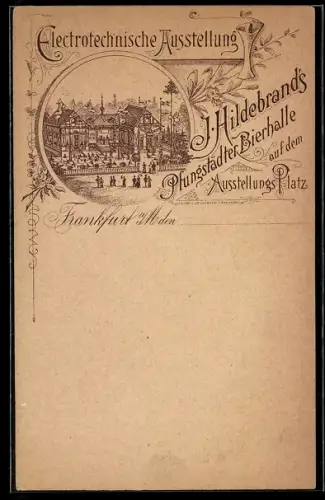 Electrotechnische Ausstellung
J. Hildebrand's
Pfungstädter Bierhalle
auf dem
Ausstellungs Platz
Frankfurt a/M den